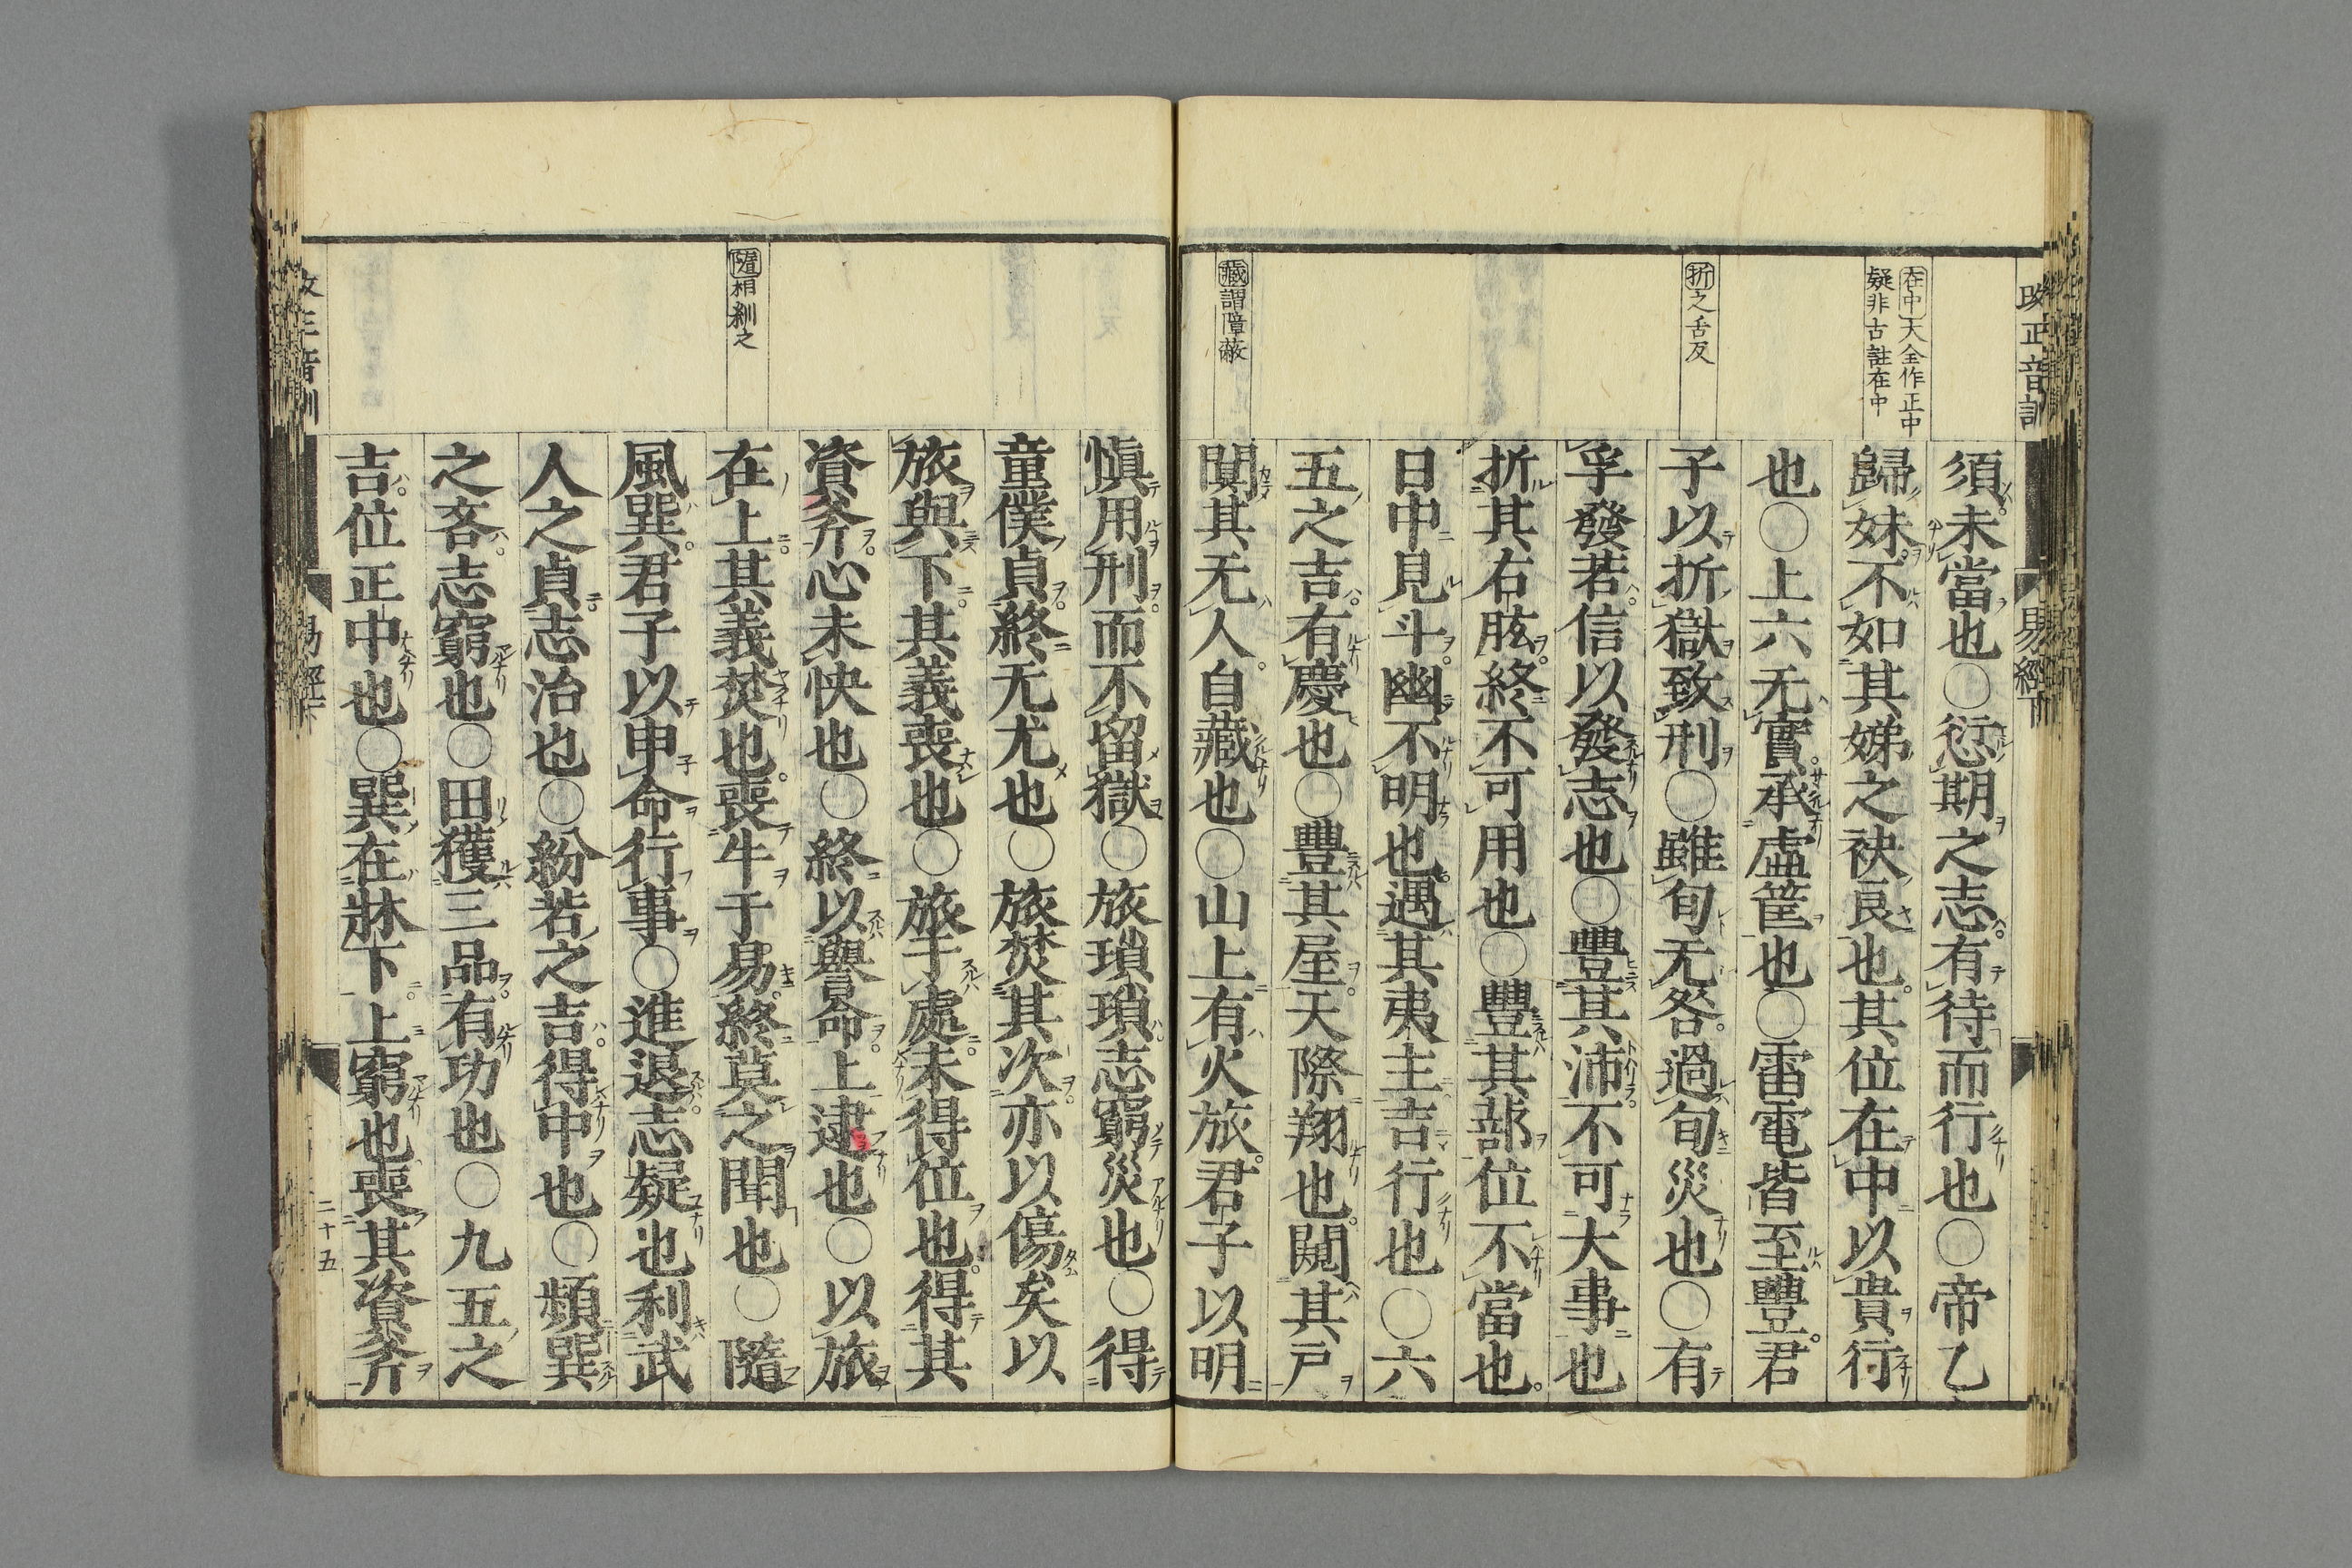 改正音訓
易經下
在中大全作正中
疑非古註在中
折之舌反
藏謂障蔽
須未當也○愆期之志有待而行也○帝乙
歸妹不如其娣之袂良也其位在中以貴行
也○上六无實承虛筐也○雷電皆至豐君
子以折獄致刑○雖旬无咎過旬災也○有
孚發若信以發志也○豐其沛不可大事也
折其右肱終不可用也○豐其蔀位不當也
日中見斗幽不明也遇其夷主吉行也○六
五之吉有慶也○豐其屋天際翔也闚其戸
闃其无人自藏也○山上有火旅君子以明
隨相剰之
慎用刑而不留獄○旅瑣瑣志窮災也○得
童僕貞終无尤也○旅焚其次亦以傷矣以
旅與下其義喪也○旅于處未得位也得其
資斧心未快也○終以譽命上逮也○以旅
在上其義焚也喪牛于易終莫之聞也○隨
風巽君子以申命行事○進退志疑也利武
人之貞志治也○紛若之吉得中也○頻巽
之吝志窮也○田獲三品有功也○九五之
吉位正中也○巽在牀下上窮也喪其資斧
易經下
二十五